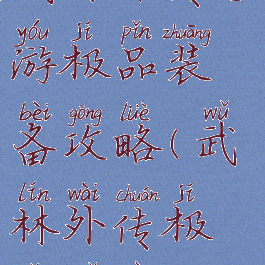 yóu jí pǐn zhuāng
游极品装
bèi gōng lüè wǔ
备攻略(武
lín wài chuán jí
林外传极